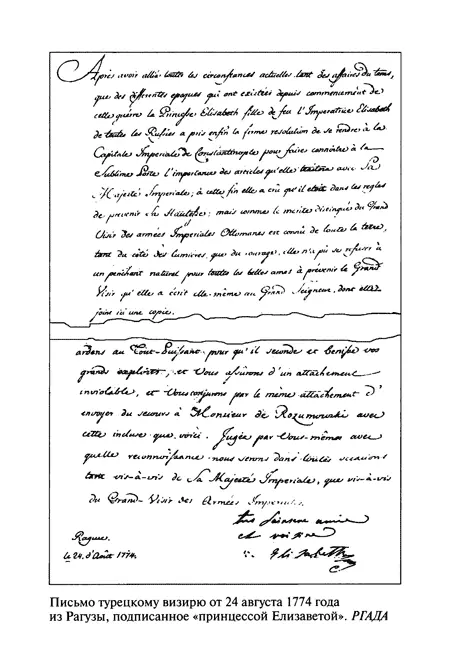 Après avoir allié toutes les circonstances actuelles tant des affaires du tems,
que des differentes epoques qui ont existées depuis commencement de
cette guere la Princesse Elisabeth fille de feu l'Imperatrice Elisabeth
de toutes les Rußies a pris enfin la firme resolution de se rendre à la
Capitale Imperiale de Constantinople pour faire connoitre à la
Sublime Porte l'importance des articles qu'elle traitera avec Sa
Majesté Imperiale; à cette fin elle a crû qu'il etoit dans les regles
de prevenir Sa Hautesse; mais comme le merite distingué du Grand
Visir des armées Imperiales Ottomanes est connû de toute la terre,
tant du côté des lumieres, que du courage, elle n'a pû se refuser à
un penchant naturel pour toutes les belles ames à prévenir le Grand
Visir qu'elle a écrit elle-même au Grand Seigneur, dont elle
joint ici une copie.
ardens au Tout-Puissant pour qu'il seconde et benisse vos
grands exploits, et Vous assûrons d'un attachement
inviolable, et Vous conjurons par le même attachement d'
envoyer du secours à Monsieur de Rozumowski avec
cette incluse que voici. Jugez par Vous-mêmes avec
quelle reconnoissance nous serons dans toutes occasions
tant vis-à-vis de Sa Majesté Imperiale, que vis-à-vis
du Grand-Visir des Armées Imperiales.
amie
et voisine
Raguse. Elisabeth
le 24. d'Août 1774.
Письмо турецкому визирю от 24 августа 1774 года
из Рагузы, подписанное «принцессой Елизаветой». РГАДА